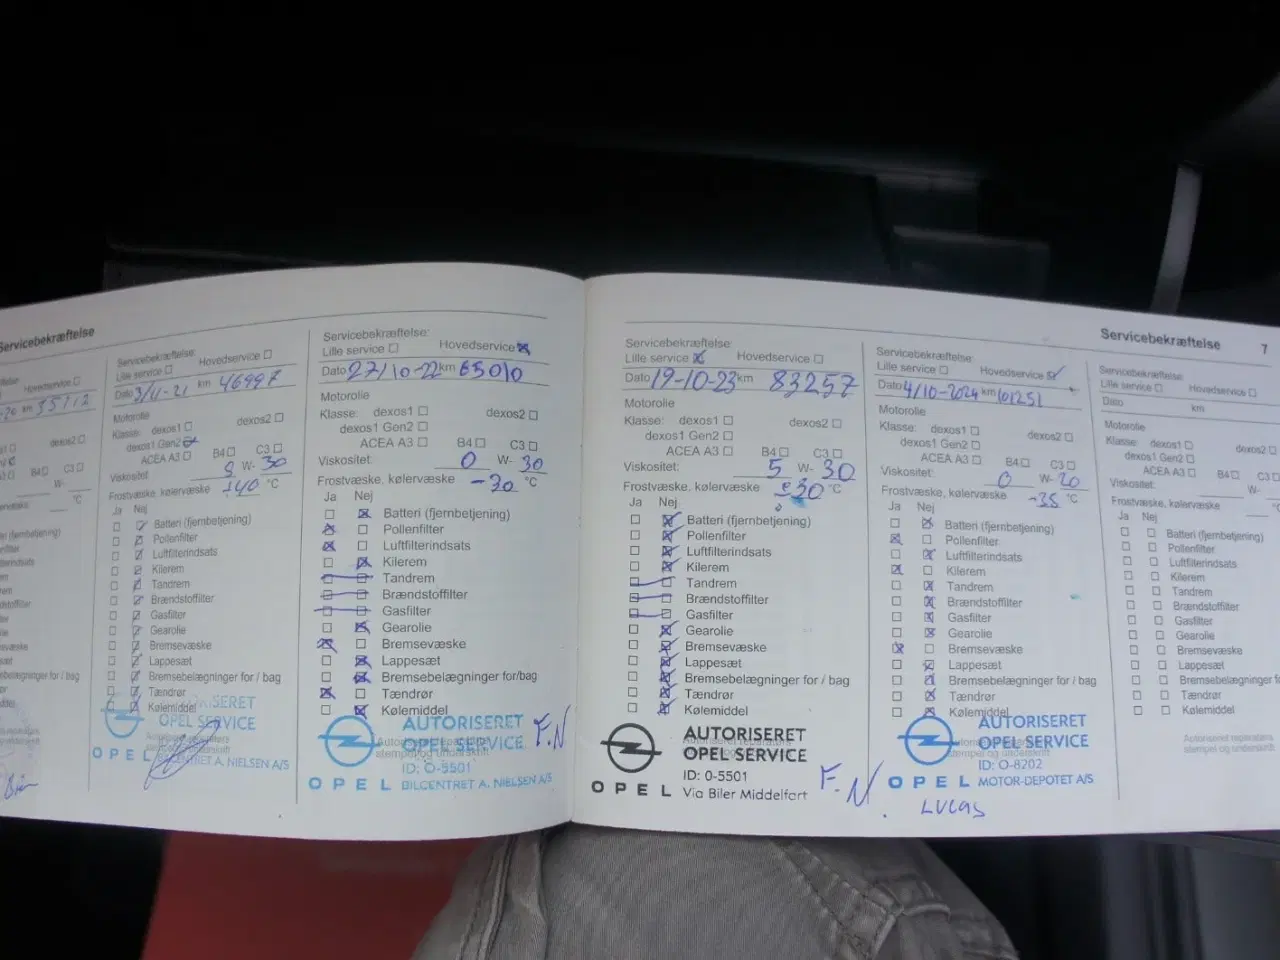 Servicebekræftelse
Hovedservice
km 35112
dexos2
B4 C3
W-
°C
Servicebekræftelse:
Lille service Hovedservice
Dato 3/11-21 km 46997
Motorolie
Klasse: dexos1 dexos2
dexos1 Gen2
ACEA A3 B4 C3
Viskositet: 5 W- 30
Frostvæske, kølervæske ÷40 °C
Ja Nej
Batteri (fjernbetjening)
Pollenfilter
Luftfilterindsats
Kilerem
Tandrem
Brændstoffilter
Gasfilter
Gearolie
Bremsevæske
Lappesæt
Bremsebelægninger for / bag
Tændrør
Kølemiddel
OPEL SERVICE
OPEL BILCENTRET A. NIELSEN A/S
Servicebekræftelse:
Lille service Hovedservice
Dato 27/10-22 km 65010
Motorolie
Klasse: dexos1 dexos2
dexos1 Gen2
ACEA A3 B4 C3
Viskositet: 0 W- 30
Frostvæske, kølervæske -30 °C
Ja Nej
Batteri (fjernbetjening)
Pollenfilter
Luftfilterindsats
Kilerem
Tandrem
Brændstoffilter
Gasfilter
Gearolie
Bremsevæske
Lappesæt
Bremsebelægninger for/bag
Tændrør
Kølemiddel
AUTORISERET
OPEL SERVICE
ID: O-5501
OPEL BILCENTRET A. NIELSEN A/S
F.N
Servicebekræftelse:
Lille service Hovedservice
Dato 19-10-23 km 83257
Motorolie
Klasse: dexos1 dexos2
dexos1 Gen2
ACEA A3 B4 C3
Viskositet: 5 W- 30
Frostvæske, kølervæske 30 °C
Ja Nej
Batteri (fjernbetjening)
Pollenfilter
Luftfilterindsats
Kilerem
Tandrem
Brændstoffilter
Gasfilter
Gearolie
Bremsevæske
Lappesæt
Bremsebelægninger for / bag
Tændrør
Kølemiddel
AUTORISERET
OPEL SERVICE
ID: 0-5501
OPEL Via Biler Middelfart
F.N.
Servicebekræftelse 7
Servicebekræftelse:
Lille service Hovedservice
Dato 4/10-2024 km 101251
Motorolie
Klasse: dexos1 dexos2
dexos1 Gen2
ACEA A3 B4 C3
Viskositet: 0 W- 20
Frostvæske, kølervæske -35 °C
Ja Nej
Batteri (fjernbetjening)
Pollenfilter
Luftfilterindsats
Kilerem
Tandrem
Brændstoffilter
Gasfilter
Gearolie
Bremsevæske
Lappesæt
Bremsebelægninger for / bag
Tændrør
Kølemiddel
AUTORISERET
OPEL SERVICE
ID: O-8202
OPEL MOTOR-DEPOTET A/S
LUCAS
Servicebekræftelse:
Lille service Hovedservice
Dato km
Motorolie
Klasse: dexos1 dexos2
dexos1 Gen2
ACEA A3 B4 C3
Viskositet: W-
Frostvæske, kølervæske °C
Ja Nej
Batteri (fjernbetjening)
Pollenfilter
Luftfilterindsats
Kilerem
Tandrem
Brændstoffilter
Gasfilter
Gearolie
Bremsevæske
Lappesæt
Bremsebelægninger
Tændrør
Kølemiddel
Autoriseret reparatørs
stempel og underskrift